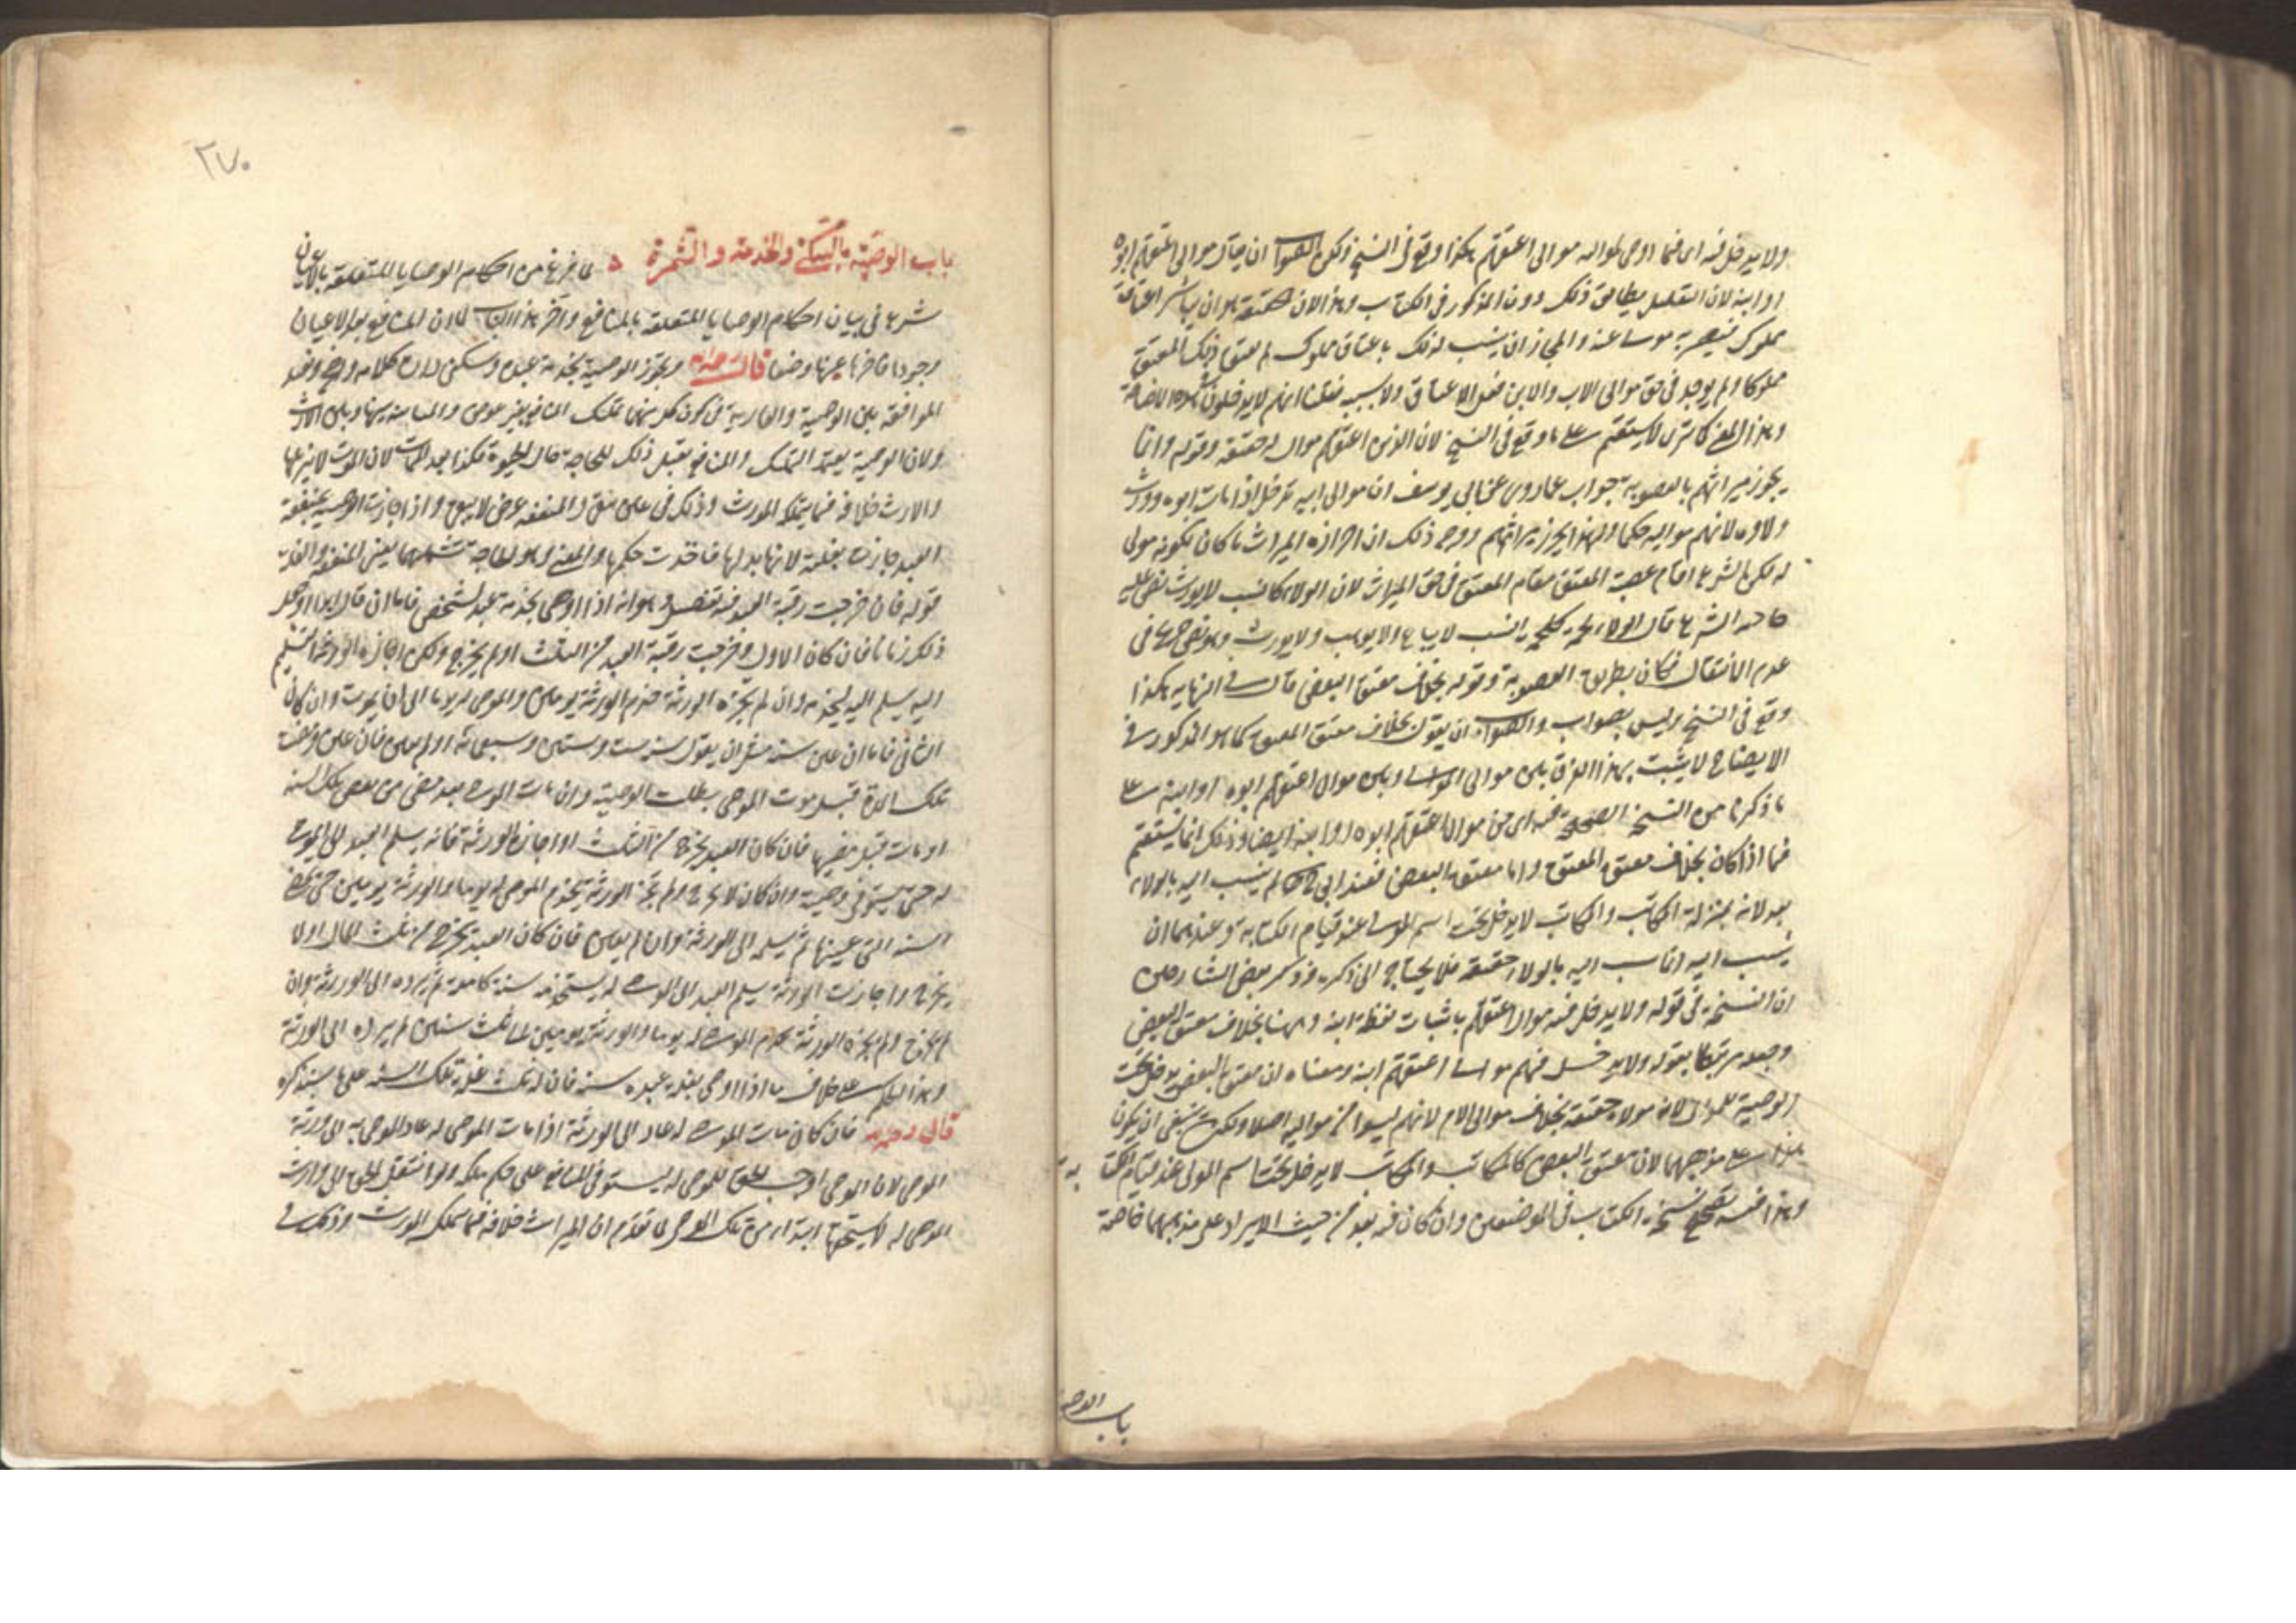 ولا يدخل فيه اى فيما اوصى لمواليه موالى اعتقهم هكذا وقع فى النسخ ولكن الصواب ان يقال موالى اعتقهم ابوه
او ابنه لان التعليل يطابق ذلك دون المذكور فى الكتاب وهذا لان حقيقته هو ان يباشر اعتاق
مملوك فيصير به منسا عنه والمجاز ان ينسب له ذلك باعتاق مملوك لم يعتق ذلك المعتق
مملوكا ولم يوجد فى حق موالى الاب والابن فعل الاعتاق ولا سببه فقلنا انهم لا يدخلون
وهذا المعنى كما ترى لا يستقيم على ما وقع فى النسخ لان الذين اعتقهم مواليه حقيقة وقوله وانما
يحوز ميراثهم بالعصوبة جواب عما روى عن ابى يوسف ان موالى ابيه تدخل اذا مات ابوه وورث
ولاءه لانهم مواليه حكما ولهذا يحرز ميراثهم ووجه ذلك ان احرازه الميراث ما كان لكونه مولى
له لكن الشرع اقام عصبة المعتق مقام المعتق فى حق الميراث لان الولاء كالنسب لا يورث نص عليه
صاحب الشرع قال الولاء لحمة كلحمة النسب لا يباع ولا يوهب ولا يورث وهو نص صريح فى
عدم الانتقال فكان بطريق العصوبة وقوله بخلاف معتق البعض قال فى النهاية هكذا
وقع فى النسخ وليس بصواب والصواب ان يقول بخلاف معتق المعتق كما هو المذكور فى
الايضاح لا يثبت بهذا الفرق بين موالى الموالى وبين موالى اعتقهم ابوه او ابنه على
ما ذكرنا من النسخ الصحيحة فيه اى من موالى اعتقهم ابوه او ابنه ايضا وذلك انما يستقيم
فيما اذا كان بخلاف معتق المعتق واما معتق البعض فعند ابى ح لم ينسب اليه بالولاء
بعد لانه بمنزلة المكاتب والمكاتب لا يدخل تحت اسم المولى عند قيام الكتابة وعندهما ان
نسب اليه انما نسب اليه بالولاء حقيقة فلا يحتاج الى ذكره وذكر بعض الشارحين
ان النسخة فى قوله ولا يدخل فيه موالى اعتقهم باثبات لفظة ابنه وههنا بخلاف معتق البعض
وجعله مرتبطا بقوله ولا يدخل فيهم موالى اعتقهم ابنه ومعناه ان معتق البعض يدخل تحت
الوصية للموالى لانه مولاه حقيقة بخلاف موالى الام لانهم ليسوا من مواليه اصلا ولكن ينبغى ان يكون
هذا على مذهبهما لان معتق البعض كالمكاتب والمكاتب لا يدخل تحت اسم المولى عند قيام الكتابة
وهذا فيه تصحيح نسخة الكتاب فى الموضعين وان كان فيه بعد من حيث الايراد على مذهبهما خاصة
باب الوصية
٢٧٠
باب الوصية بالسكنى والخدمة والثمرة لما فرغ من احكام الوصايا المتعلقة بالاعيان
شرع فى بيان احكام الوصايا المتعلقة بالمنافع واخر هذا الباب لان المنافع بعد الاعيان
وجودا فاخرها عنها وضعا قال رحمه الله ويجوز الوصية بخدمة عبده وسكنى داره كلامه واضح وفيه
الموافقة بين الوصية والعارية فى كون كل منهما تمليك المنافع بغير عوض والمباينة بينها وبين الارث
ولان الوصية يعتمد التمليك والمنافع يقبل ذلك للحاجة حال الحيوة فكذا بعد الممات لان الموت لا يزيلها
والارث خلافة فيما يتملكه المورث وذلك فى عين تبقى والمنفعة عرض لا يبقى واذا جازت الوصية بمنفعة
العبد جازت بغلته لانها بدلها فاخذت حكمها والمعنى وهو الحاجة تشملهما يعنى المنفعة والغلة
قوله فان خرجت رقبة العبد فيه تفصيل وهو انه اذا اوصى بخدمة عبد لشخص فاما ان قال ابدا او جعل
ذلك زمانا فان كان الاول وخرجت رقبة العبد من الثلث او لم يخرج ولكن اجازه الورثة التسليم
اليه يسلم اليه ليخدمه وان لم يجزه الورثة خدم الورثة يومين والموصى له يوما الى ان يموت وان كان
الثانى فاما ان عين سنة مثل ان يقول سنة ست وستين وسبعمائة او لم يعين فان عين ومضت
تلك المدة قبل موت الموصى بطلت الوصية وان مات الموصى بعد مضى من بعض تلك السنة
او مات قبل مضيها فان كان العبد يخرج من الثلث او اجازه الورثة فانه يسلم العبد الى الموصى
له حتى يستوفى وصيته وان كان لا يخرج ولم يجز الورثة يخدم الموصى له يوما والورثة يومين حتى تمضى
السنة التى عينها ثم يسلم الى الورثة وان لم يعين فان كان العبد يخرج من ثلث المال او لا
يخرج واجازت الورثة يسلم العبد الى الموصى له يستخدمه سنة كاملة ثم يرده الى الورثة وان
لم يخرج ولم يجزه الورثة يخدم الموصى له يوما والورثة يومين الى ثلث سنين ثم يرده الى الورثة
وهذا الحكم على خلاف ما اذا اوصى بغلة عبده سنة فان له ثلث غلة تلك السنة على ما سنذكره
قال رحمه الله فان كان مات الموصى له عاد الى الورثة اذا مات الموصى له عاد الموصى به الى ورثة
الموصى لان الموصى اوجب الحق للموصى له ليستوفى المنافع على حكم ملكه ولو انتقل الحق الى وارث
الموصى له لاستحقها ابتداء من ملك الموصى لما تقدم ان الميراث خلافة فيما يملكه المورث وذلك فى